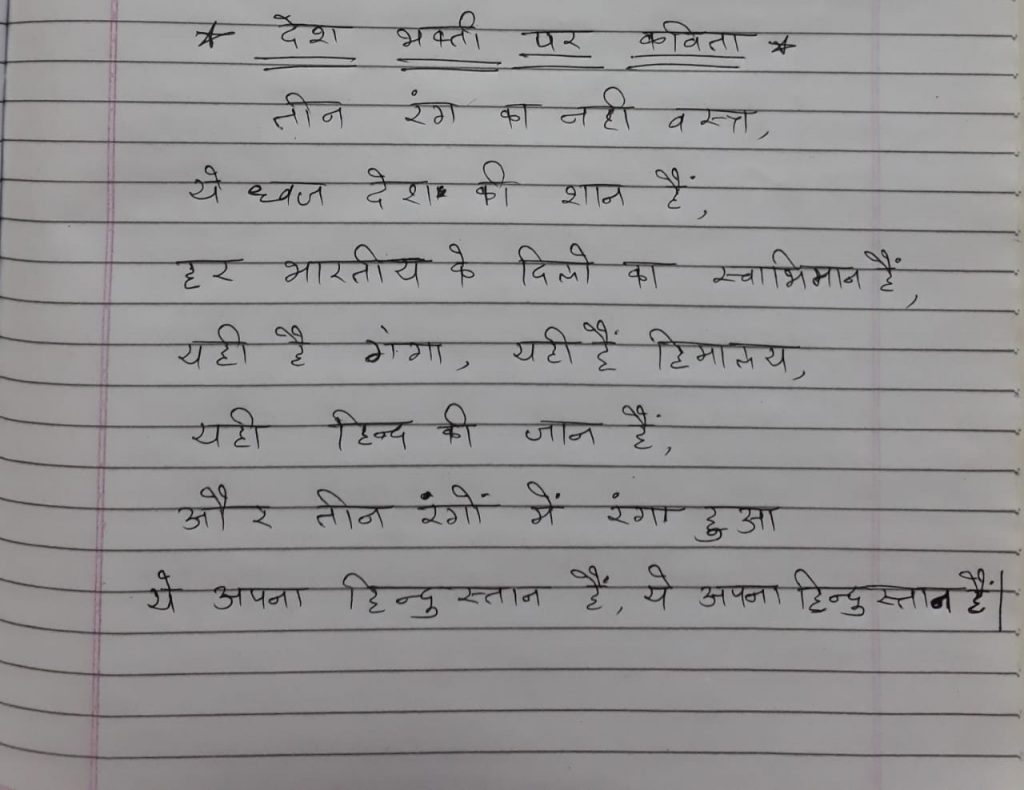 * देश भक्ती पर कविता *
तीन रंग का नही वस्त्र,
ये ध्वज देश की शान हैं,
हर भारतीय के दिलो का स्वाभिमान हैं,
यही है गंगा, यही हैं हिमालय,
यही हिन्द की जान हैं,
और तीन रंगों में रंगा हुआ
ये अपना हिन्दुस्तान हैं, ये अपना हिन्दुस्तान हैं|